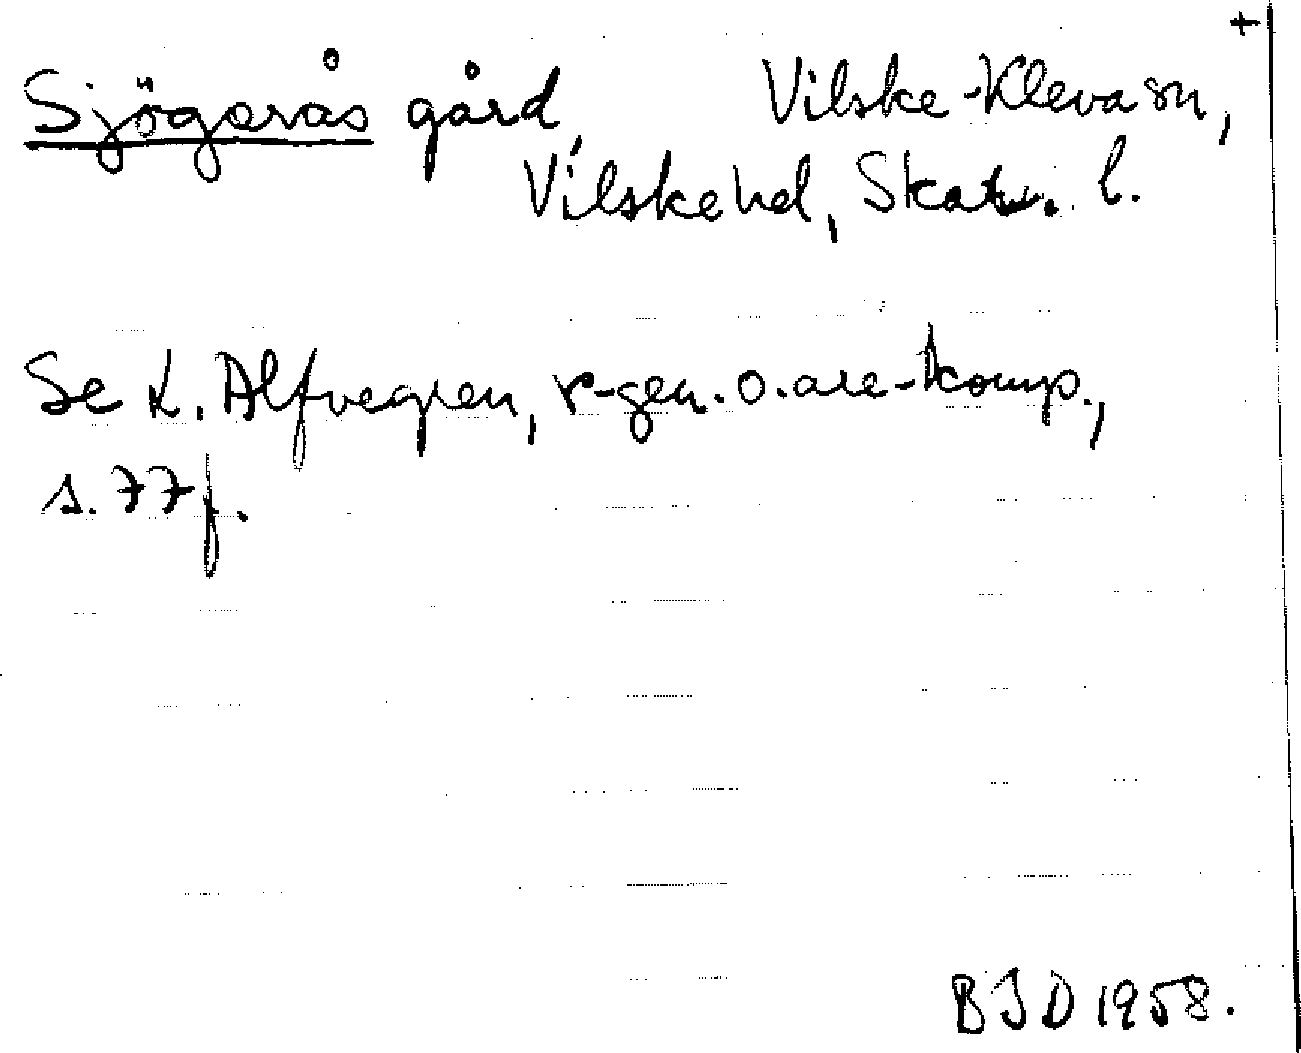 +
Sjögarås gård, Vilske-Kleva sn,
Vilske hd, Skarab. l.
Se L. Alfvegren, r-gen. o. are-komp.,
s. 77 f.
BJD 1958.